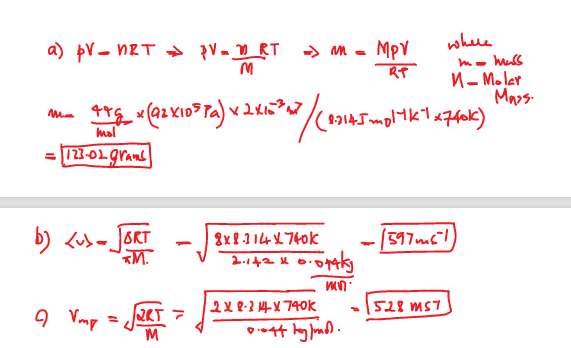 a) pV = nRT ⇒ pV = m RT / M ⇒ m = MpV / RT where
m = mass
M - Molar
Mass.
m = 44g / mol × (92×10⁵ Pa) × 2×10⁻³ m³ / (8.314 J mol⁻¹ K⁻¹ × 740K)
= 123.02 grams
b) <v> = √ 8RT / πM. = √ 8×8.314×740K / 3.142 × 0.044kg / mol. = 597 ms⁻¹
c) Vmp = √ 2RT / M = √ 2×8.314×740K / 0.044 kg/mol. = 528 ms⁻¹